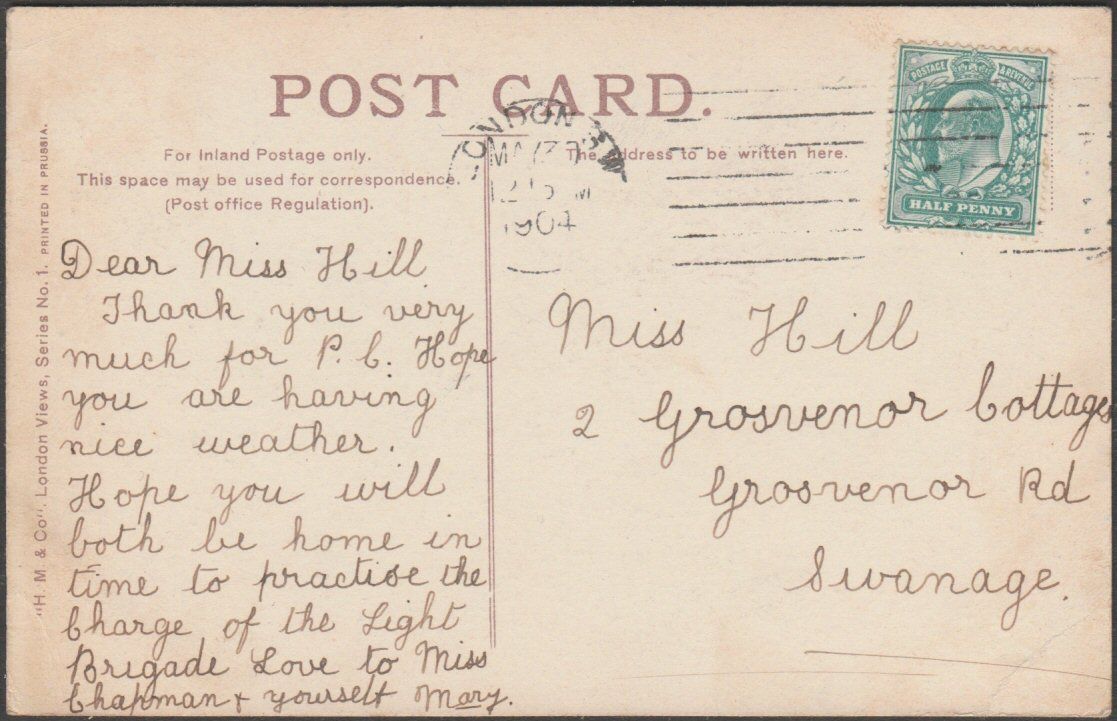 POST CARD.
For Inland Postage only.
This space may be used for correspondence.
(Post office Regulation).
The address to be written here.
LONDON S.W
MAY 3
12 15 M
1904
POSTAGE & REVENUE
HALF PENNY
"H. M. & Co", London Views, Series No. 1. PRINTED IN PRUSSIA.
Dear Miss Hill
Thank you very
much for P. C. Hope
you are having
nice weather.
Hope you will
both be home in
time to practise the
Charge of the Light
Brigade Love to Miss
Chapman & yourself Mary.
Miss Hill
2 Grosvenor Cottages
Grosvenor Rd
Swanage.